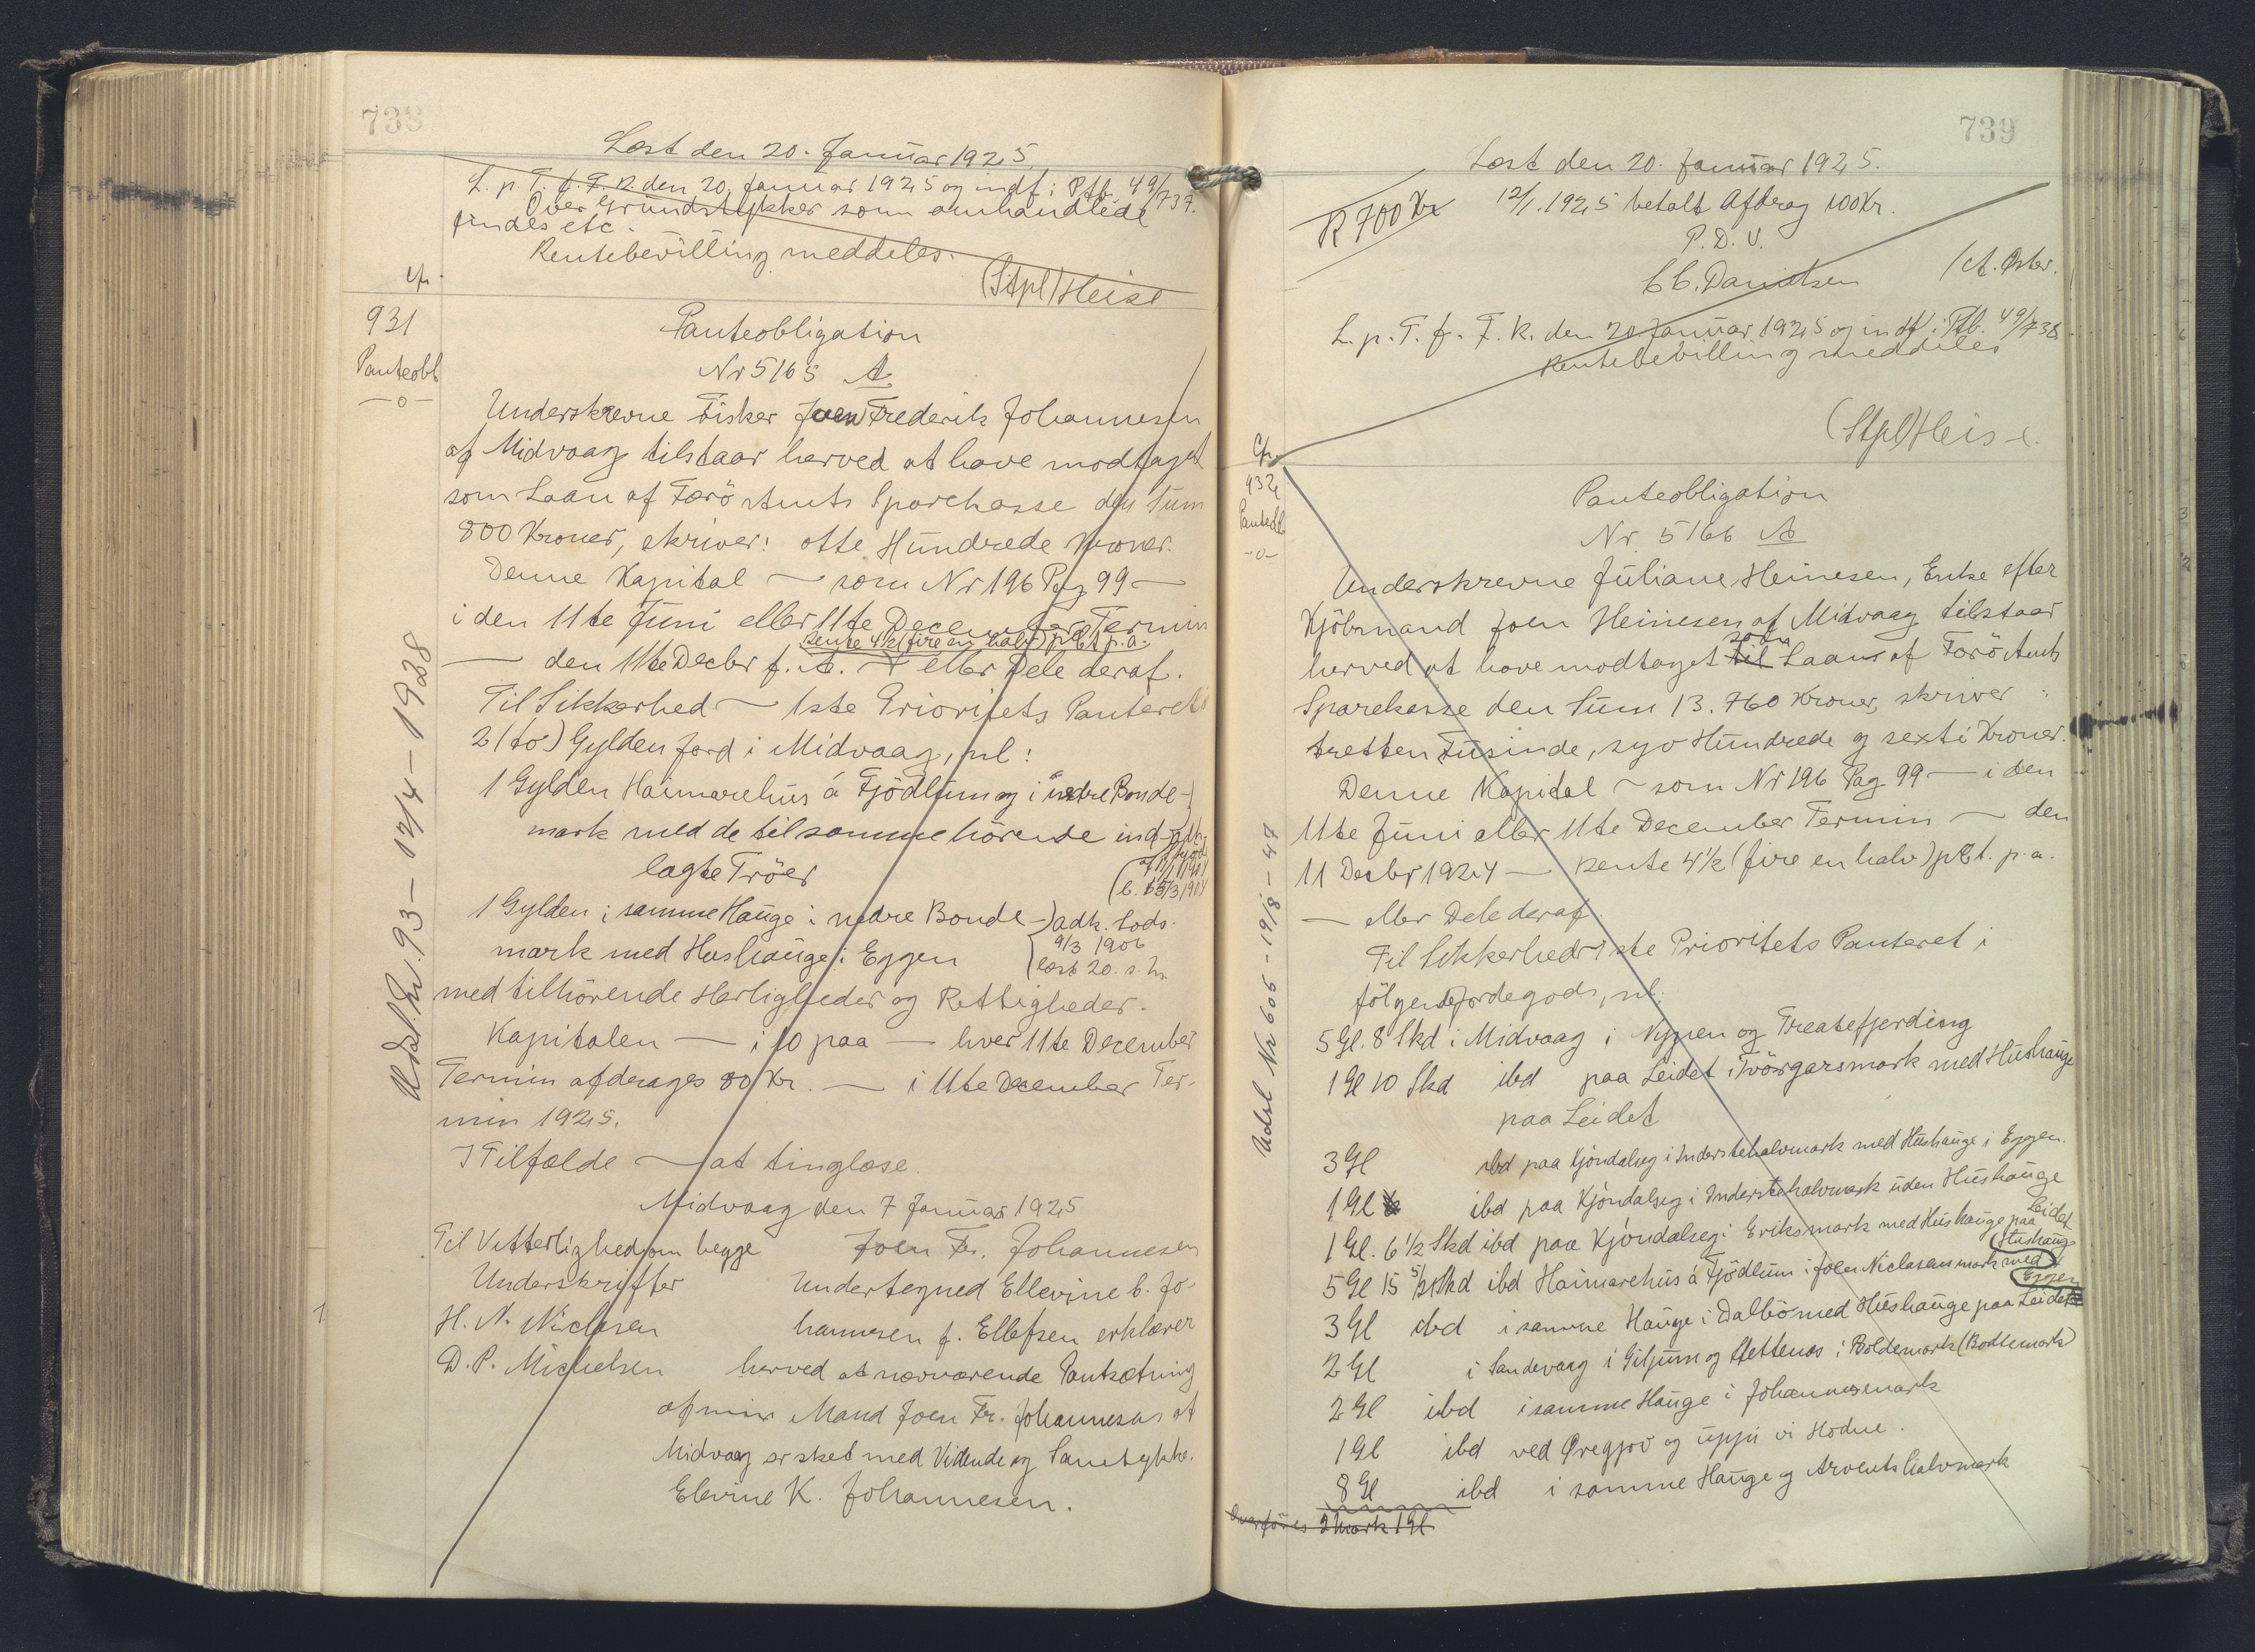 738
Læst den 20. Januar 1925.
L. p. T. f. F. R. den 20. Januar 1925 og indf. i Ptb. 49/737.
Over Grundstykker som omhandlede
findes etc.
Rentebevilling meddeles.
(Stpl) Heise
Cfr.
931
Panteobl
-o-
Panteobligation
Nr 5165 A
Underskrevne Fisker Joen Frederik Johannesen
af Midvaag tilstaar herved at have modtaget
som Laan af Færö Amts Sparekasse den Sum
800 Kroner, skriver: otte Hundrede Kroner.
Denne Kapital — som Nr 196 Pag 99 —
i den 11te Juni eller 11te December Termin
Rente 4½ (fire en halv) pCt p.a.
— den 11te Decbr f. A. — eller Dele deraf.
Til Sikkerhed — 1ste Prioritets Panteret i
2 (to) Gylden Jord i Midvaag, nl:
1 Gylden Haimarehus á Fjödlum og i nedre Bonde-
mark med de til samme hörende ind-
lagte Tröer
1 Gylden i samme Hauge i nedre Bonde-
mark med Hushauge i Eggen
adk. Lods.
9/3 1906
læst 20. s. M.
med tilhörende Herligheder og Rettigheder.
Kapitalen — i 10 paa — hver 11te December
Termin afdrages 80 Kr. — i 11te December Ter-
min 1925.
I Tilfælde — at tinglæse.
Midvaag den 7 Januar 1925
Til Vitterlighed om begge
Joen Fr. Johannesen
Underskrifter
Undertegned Ellevine C. Jo-
H. N. Niclasen
hannesen f. Ellefsen erklærer
D. P. Michelsen
herved at nærværende Pantsætning
af min Mand Joen Fr. Johannesen af
Midvaag er sket med Vidende og Samtykke.
Elevine K. Johannesen.
Udsl. Nr. 93 - 12/4 - 1928
739
Læst den 20. Januar 1925.
R 700 Kr
12/1. 1925 betalt Afdrag 100 Kr.
P. D. V.
C. C. Danielsen
/A. Øster.
L. p. T. f. F. R. den 20 Januar 1925 og indf. i Ptb. 49/738
Rentebevilling meddeles
(Stpl) Heise.
Cfr
932
Panteobl
-o-
Panteobligation
Nr. 5166 A
Underskrevne Juliane Heinesen, Enke efter
Kjöbmand Joen Heinesen af Midvaag tilstaar
herved at have modtaget til som Laan af Færö Amts
Sparekasse den Sum 13.760 Kroner, skriver:
tretten Tusinde, syv Hundrede og sexti Kroner.
Denne Kapital — som Nr 196 Pag 99 — i den
11te Juni eller 11te December Termin — den
11 Decbr 1924 — Rente 4½ (fire en halv) pCt. p.a.
— eller Dele deraf
Til Sikkerhed 1ste Prioritets Panteret i
fölgende Jordegods, nl:
5 Gl. 8 Skd i Midvaag i Nypen og Treatefjerding
1 Gl 10 Skd ibd paa Leidet i Tvörgarsmark med Hushauge
paa Leidet
3 Gl ibd paa Kjöndalseg i Inderstehalvmark med Hushauge i Eggen.
1 Gl ibd paa Kjöndalseg i Inderstehalvmark uden Hushauge
1 Gl. 6½ Skd ibd paa Kjöndalseg i Eriksmark med Hushauge paa Leidet
5 Gl 15 5/21 Skd ibd Haimarehus á Fjödlum i Joen Niclasens mark med Hushauge Eggen
3 Gl ibd i samme Hauge i Dalbö med Hushauge paa Leidet
2 Gl i Sandevaag i Giljum og Stettenæs i Boldemark (Bodlemark)
2 Gl ibd i samme Hauge i Johannesmark
1 Gl ibd ved Öregjov og uppi vi Hodne.
8 Gl ibd i samme Hauge og Arvents halvmark
Overföres 2 Mark 1 Gl.
Udsl Nr 606 - 19/8 - 47